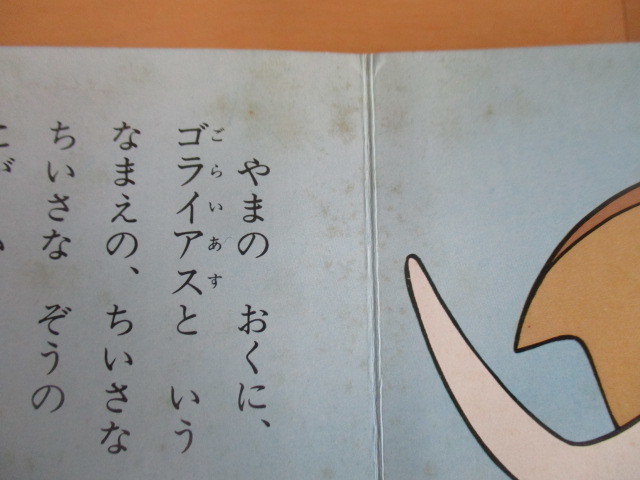 やまの おくに、
ゴライアスと いう
ごらいあす
なまえの、ちいさな
ちいさな ぞうの